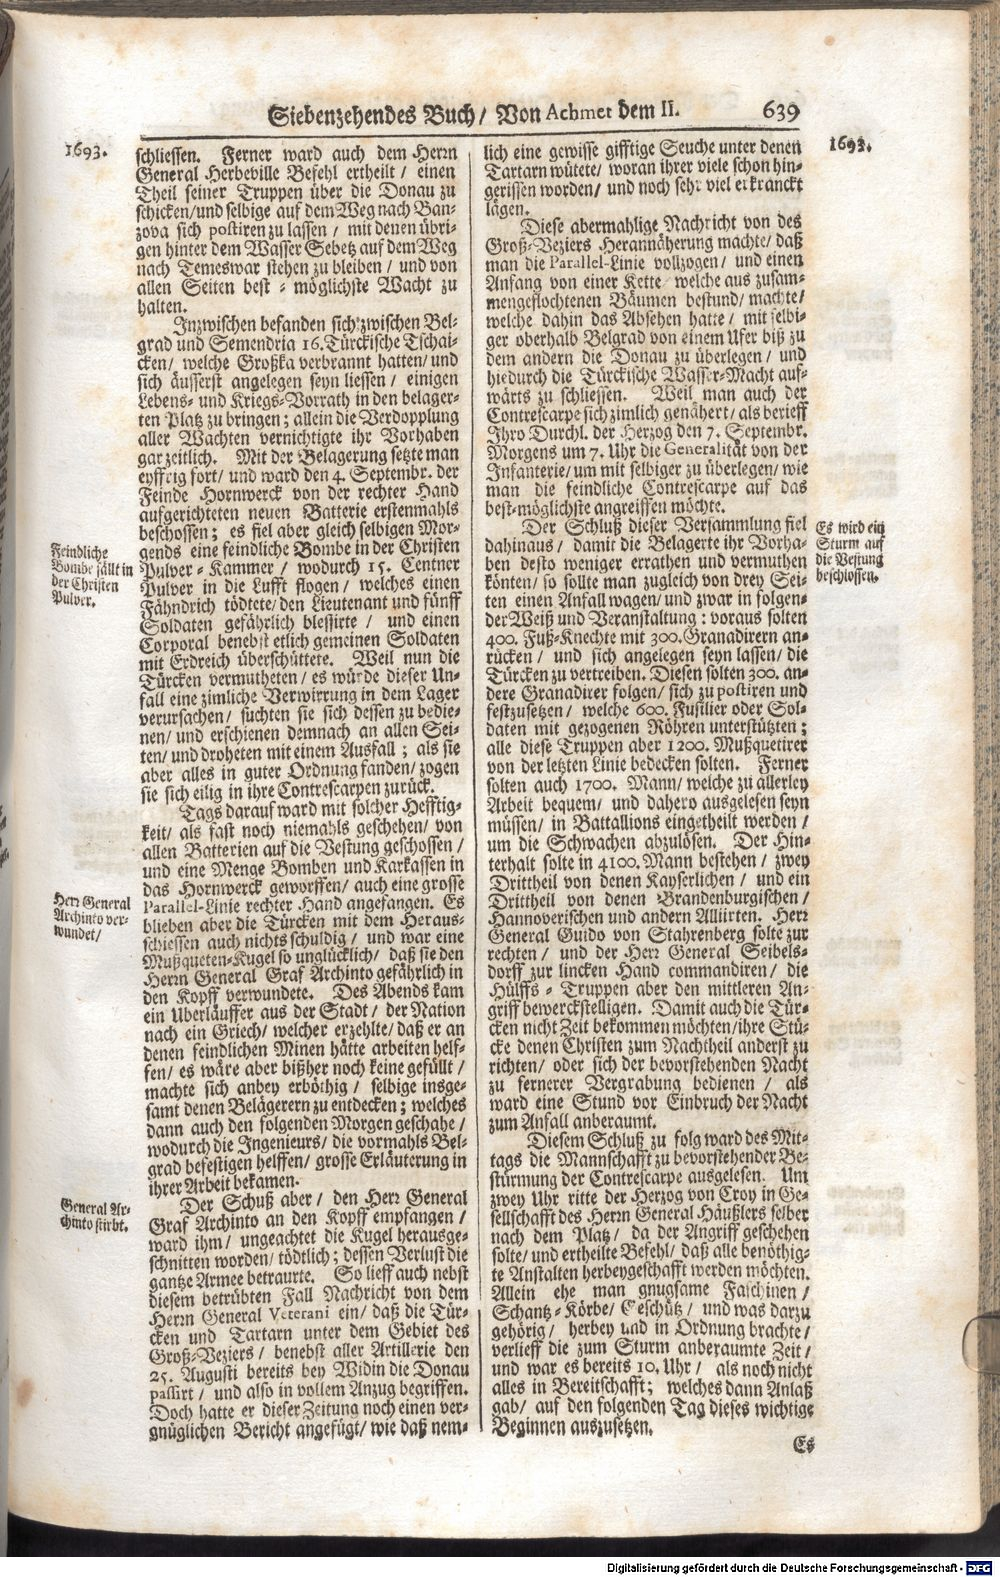 Siebenzehendes Buch/ Von Achmet dem II. 639
1693.
schliessen. Ferner ward auch dem Herrn
General Herbeville Befehl ertheilt / einen
Theil seiner Truppen über die Donau zu
schicken/und selbige auf dem Weg nach Ban-
zova sich postiren zu lassen / mit denen übri-
gen hinter dem Wasser Sebetz auf dem Weg
nach Temeswar stehen zu bleiben / und von
allen Seiten best - möglichste Wacht zu
halten.
Inzwischen befanden sich zwischen Bel-
grad und Semendria 16. Türckische Tschai-
cken/ welche Großka verbrannt hatten/ und
sich äusserst angelegen seyn liessen / einigen
Lebens- und Kriegs-Vorrath in den belager-
ten Platz zu bringen; allein die Verdopplung
aller Wachten vernichtigte ihr Vorhaben
gar zeitlich. Mit der Belagerung setzte man
eyffrig fort/ und ward den 4. Septembr. der
Feinde Hornwerck von der rechter Hand
aufgerichteten neuen Batterie erstenmahls
beschossen; es fiel aber gleich selbigen Mor-
gends eine feindliche Bombe in der Christen
Pulver - Kammer / wodurch 15. Centner
Pulver in die Lufft flogen / welches einen
Fähndrich tödtete/ den Lieutenant und fünff
Soldaten gefährlich blessirte / und einen
Corporal benebst etlich gemeinen Soldaten
mit Erdreich überschüttete. Weil nun die
Türcken vermutheten / es würde dieser Un-
fall eine zimliche Verwirrung in dem Lager
verursachen/ suchten sie sich dessen zu bedie-
nen/ und erschienen demnach an allen Sei-
ten/ und droheten mit einem Ausfall ; als sie
aber alles in guter Ordnung fanden/ zogen
sie sich eilig in ihre Contrescarpen zurück.
Tags darauf ward mit solcher Hefftig-
keit/ als fast noch niemahls geschehen/ von
allen Batterien auf die Vestung geschossen /
und eine Menge Bomben und Karkassen in
das Hornwerck geworffen/ auch eine grosse
Parallel-Linie rechter Hand angefangen. Es
blieben aber die Türcken mit dem Heraus-
schiessen auch nichts schuldig / und war eine
Mußqueten-Kugel so unglücklich/ daß sie den
Herrn General Graf Archinto gefährlich in
den Kopff verwundete. Des Abends kam
ein Uberläuffer aus der Stadt / der Nation
nach ein Griech/ welcher erzehlte/ daß er an
denen feindlichen Minen hätte arbeiten helf-
fen/ es wäre aber bißher noch keine gefüllt /
machte sich anbey erböthig / selbige insge-
samt denen Belägerern zu entdecken ; welches
dann auch den folgenden Morgen geschahe /
wodurch die Ingenieurs/ die vormahls Bel-
grad befestigen helffen/ grosse Erläuterung in
ihrer Arbeit bekamen.
Der Schuß aber / den Herr General
Graf Archinto an den Kopff empfangen /
ward ihm / ungeachtet die Kugel herausge-
schnitten worden/ tödtlich ; dessen Verlust die
gantze Armee betraurte. So lieff auch nebst
diesem betrübten Fall Nachricht von dem
Herrn General Veterani ein/ daß die Tür-
cken und Tartarn unter dem Gebiet des
Groß-Veziers / benebst aller Artillerie den
25. Augusti bereits bey Widin die Donau
passirt / und also in vollem Anzug begriffen.
Doch hatte er dieser Zeitung noch einen ver-
gnüglichen Bericht angefügt/ wie daß nem-
Feindliche
Bombe fällt in
der Christen
Pulver.
Herr General
Archinto ver-
wundet/
General Ar-
chinto stirbt.
lich eine gewisse gifftige Seuche unter denen
Tartarn wütete/ woran ihrer viele schon hin-
gerissen worden/ und noch sehr viel erkranckt
lägen.
Diese abermahlige Nachricht von des
Groß-Veziers Herannäherung machte/ daß
man die Parallel-Linie vollzogen / und einen
Anfang von einer Kette welche aus zusam-
mengeflochtenen Bäumen bestund/ machte/
welche dahin das Absehen hatte / mit selbi-
ger oberhalb Belgrad von einem Ufer biß zu
dem andern die Donau zu überlegen / und
hiedurch die Türckische Wasser-Macht auf-
wärts zu schliessen. Weil man auch der
Contrescarpe sich zimlich genähert/ als berieff
Ihro Durchl. der Herzog den 7. Septembr.
Morgens um 7. Uhr die Generalität von der
Infanterie/ um mit selbiger zu überlegen/ wie
man die feindliche Contrescarpe auf das
best-möglichste angreiffen möchte.
Der Schluß dieser Versammlung fiel
dahinaus / damit die Belagerte ihr Vorha-
ben desto weniger errathen und vermuthen
könten/ so sollte man zugleich von drey Sei-
ten einen Anfall wagen/ und zwar in folgen-
der Weiß und Veranstaltung : voraus solten
400. Fuß-Knechte mit 300. Granadirern an-
rücken / und sich angelegen seyn lassen/ die
Türcken zu vertreiben. Diesen solten 300. an-
dere Granadirer folgen/ sich zu postiren und
festzusetzen / welche 600. Fusilier oder Sol-
daten mit gezogenen Röhren unterstützten ;
alle diese Truppen aber 1200. Mußquetirer
von der letzten Linie bedecken solten. Ferner
solten auch 1700. Mann/ welche zu allerley
Arbeit bequem/ und dahero ausgelesen seyn
müssen/ in Battallions eingetheilt werden /
um die Schwachen abzulösen. Der Hin-
terhalt solte in 4100. Mann bestehen / zwey
Drittheil von denen Kayserlichen / und ein
Drittheil von denen Brandenburgischen /
Hannoverischen und andern Alliirten. Herr
General Guido von Stahrenberg solte zur
rechten / und der Herr General Seibels-
dorff zur lincken Hand commandiren / die
Hülffs - Truppen aber den mittleren An-
griff bewerckstelligen. Damit auch die Tür-
cken nicht Zeit bekommen möchten/ ihre Stü-
cke denen Christen zum Nachtheil anderst zu
richten/ oder sich der bevorstehenden Nacht
zu fernerer Vergrabung bedienen / als
ward eine Stund vor Einbruch der Nacht
zum Anfall anberaumt.
Diesem Schluß zu folg ward des Mit-
tags die Mannschafft zu bevorstehender Be-
stürmung der Contrescarpe ausgelesen. Um
zwey Uhr ritte der Herzog von Croy in Ge-
sellschafft des Herrn General Häußlers selber
nach dem Platz / da der Angriff geschehen
solte/ und ertheilte Befehl/ daß alle benöthig-
te Anstalten herbeygeschafft werden möchten.
Allein ehe man gnugsame Faschinen /
Schantz - Körbe/ Geschütz / und was darzu
gehörig / herbey und in Ordnung brachte /
verlieff die zum Sturm anberaumte Zeit /
und war es bereits 10. Uhr / als noch nicht
alles in Bereitschafft; welches dann Anlaß
gab/ auf den folgenden Tag dieses wichtige
Beginnen auszusetzen.
Es
1693.
Es wird ein
Sturm auf
die Vestung
beschlossen.
Digitalisierung gefördert durch die Deutsche Forschungsgemeinschaft - DFG